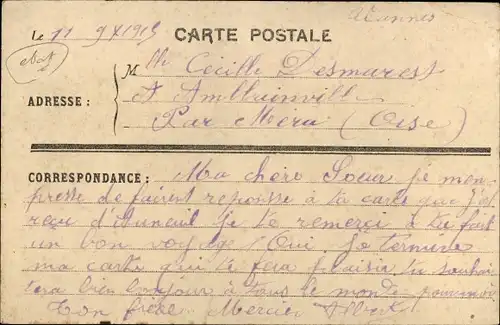 Vannes
Le 11 9 1915
CARTE POSTALE
Mlle Cécille Desmarest
ADRESSE :
A Amblainville
Par Méru (Oise)
CORRESPONDANCE : Ma chère Soeur je men
presse de faire reponsse à ta carte que j'ai
reçu je te remerci à tu fait
un bon voyage ! Oui. Je termine
ma carte qui te fera plaisir tu souhai
tera bien bonjour à tous le monde pour moi
Ton frère Mercier Albert